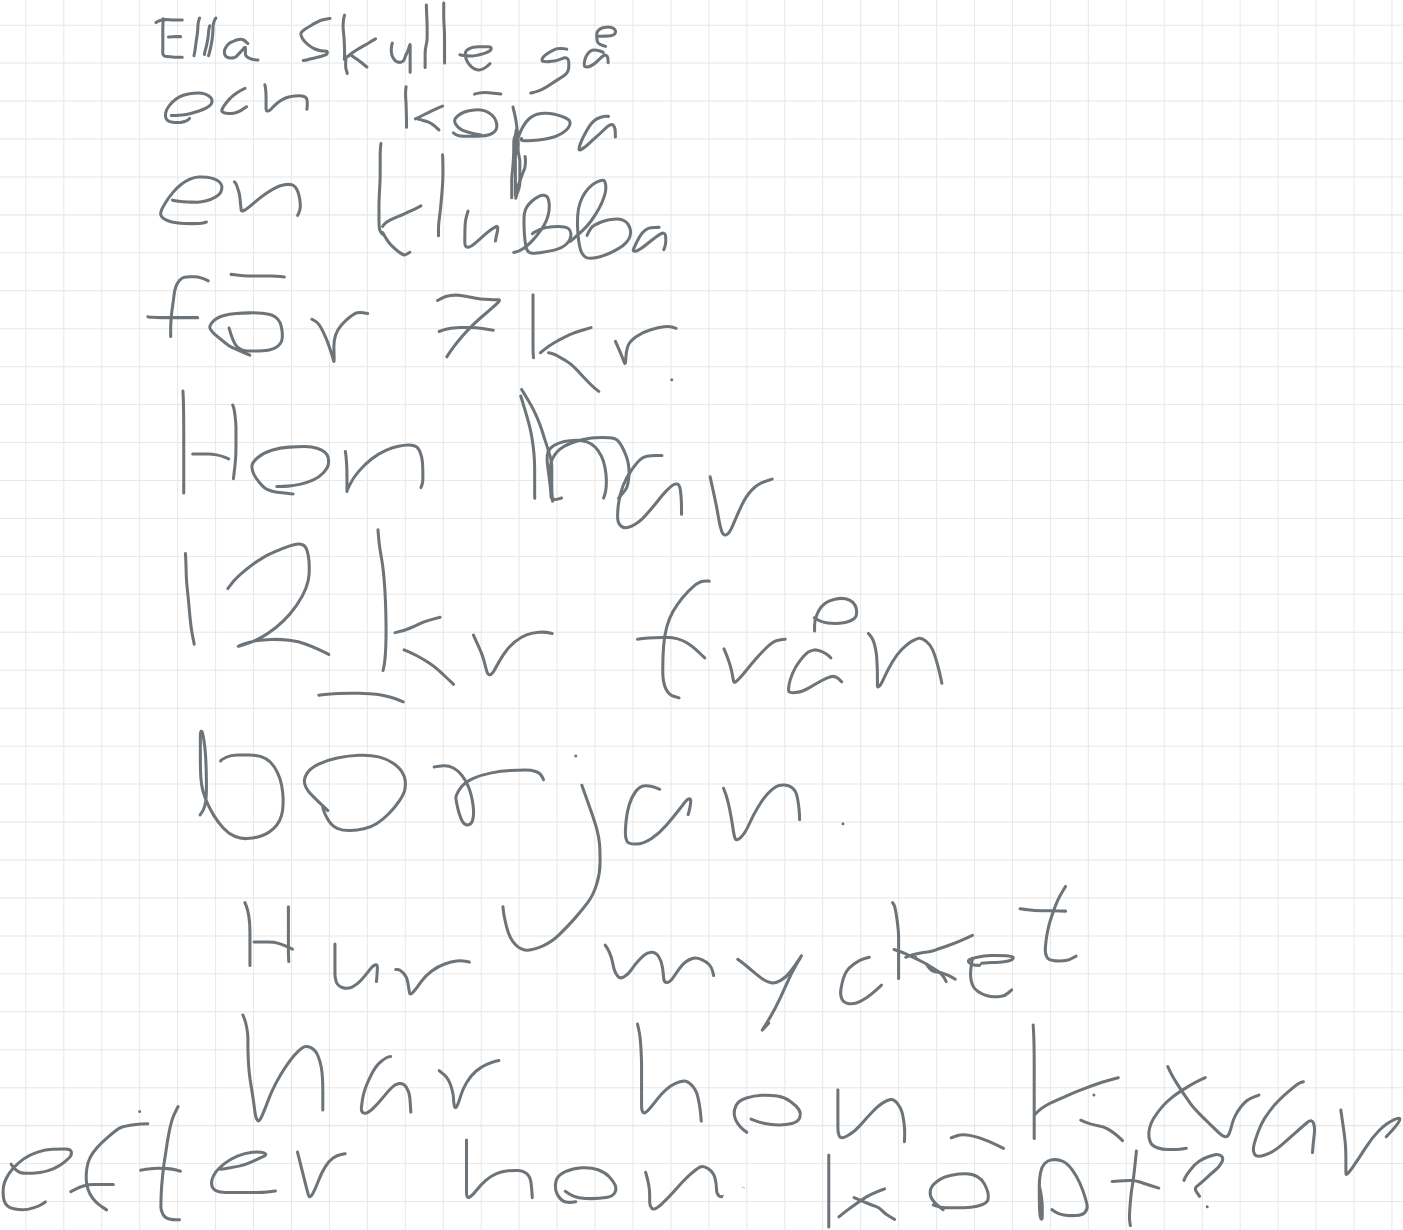 Ella skulle gå
och köpa
en klubba
för 7kr.
Hon har
12kr från
början.
Hur mycket
har hon kxrar
efter hon köpt?